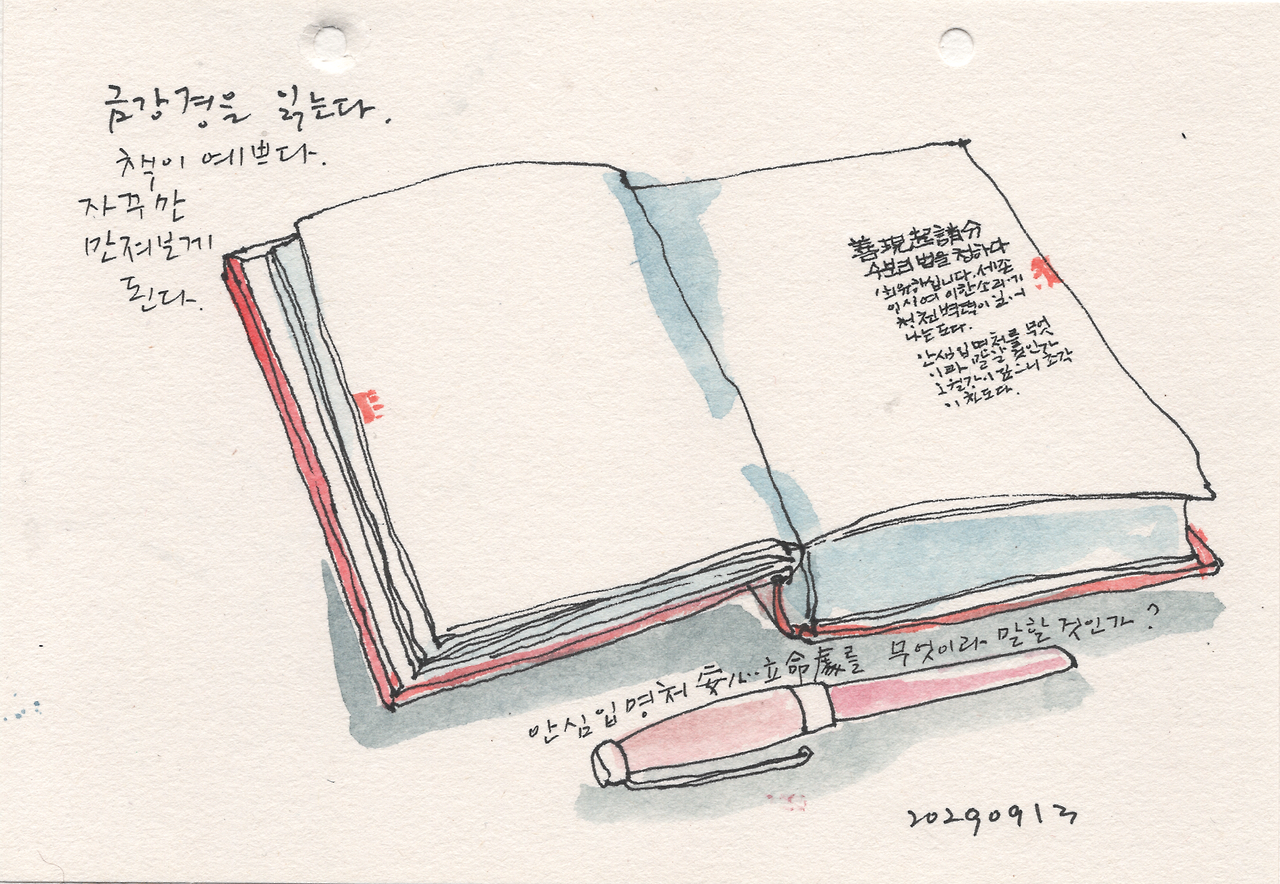 금강경을 읽는다.
책이 예쁘다.
자꾸만
만져보게
된다.
善現起請分
수보리 법을 청하다
희유하십니다. 세존
이시여 이 한 소리에
청천벽력이 일어
나는도다.
안심입명처를 무엇
이라 말할 것인가
이 찬도다.
안심입명처 安心立命處를 무엇이라 말할 것인가?